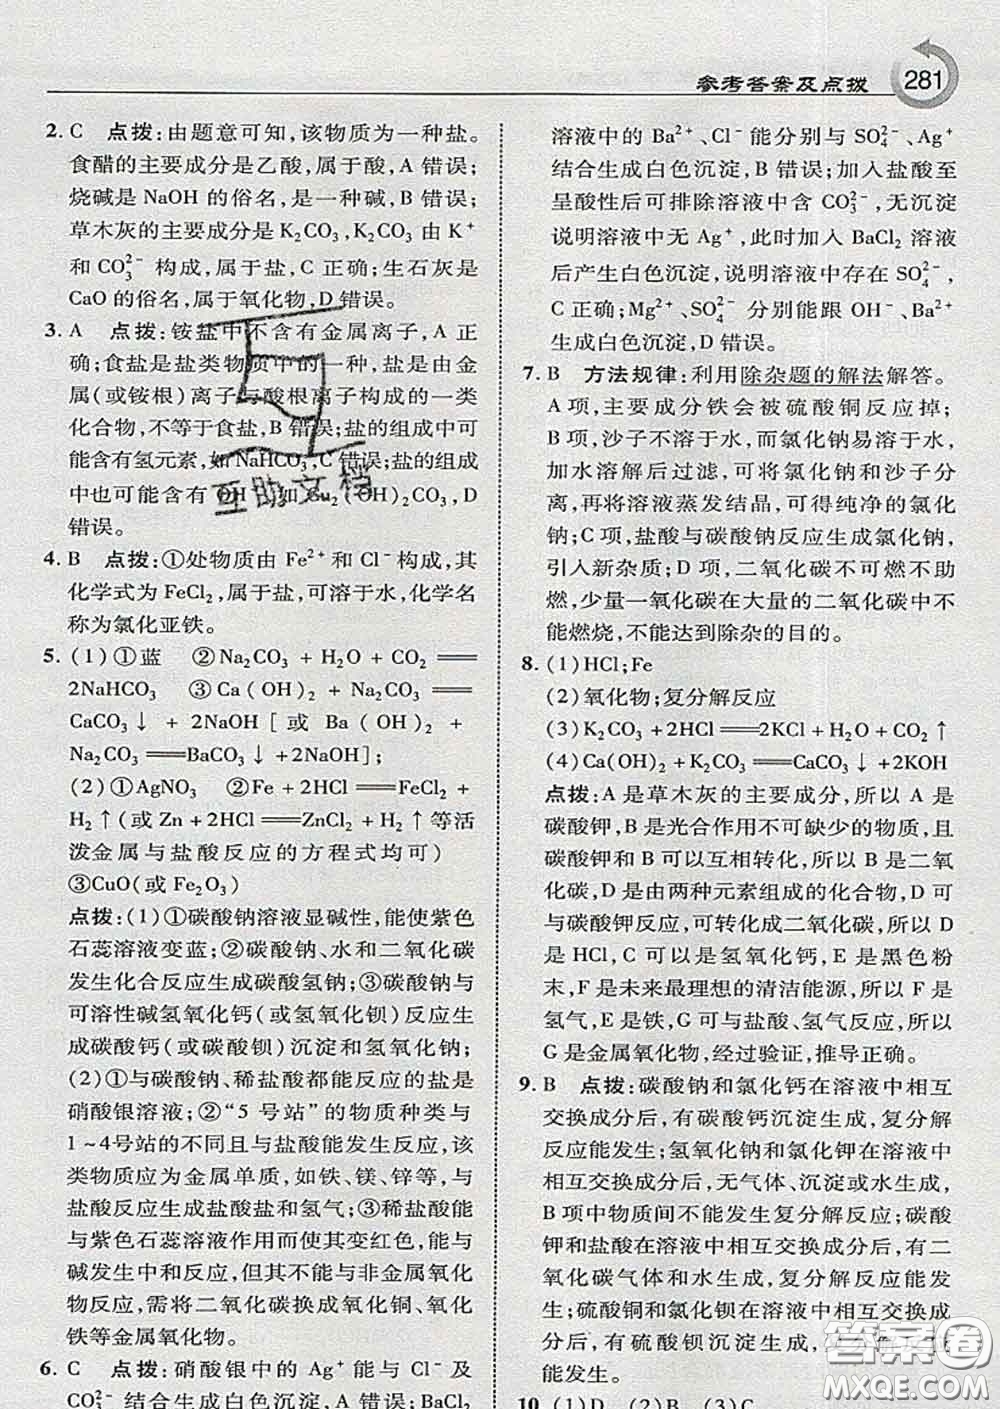 参考答案及点拨
281
2. C 点拨:由题意可知,该物质为一种盐。
食醋的主要成分是乙酸,属于酸,A 错误;
烧碱是 NaOH 的俗名,是一种碱,B 错误;
草木灰的主要成分是 K₂CO₃,K₂CO₃ 由 K⁺
和 CO₃²⁻ 构成,属于盐,C 正确;生石灰是
CaO 的俗名,属于氧化物,D 错误。
3. A 点拨:铵盐中不含有金属离子,A 正
确;食盐是盐类物质中的一种,盐是由金
属(或铵根)离子与酸根离子构成的一类
化合物,不等于食盐,B 错误;盐的组成中可
能含有氢元素,如 NaHCO₃,C 错误;盐的组成
中也可能含有 OH⁻,如 Cu₂(OH)₂CO₃,D
错误。
4. B 点拨:①处物质由 Fe²⁺ 和 Cl⁻ 构成,其
化学式为 FeCl₂,属于盐,可溶于水,化学名
称为氯化亚铁。
5. (1)①蓝 ②Na₂CO₃ + H₂O + CO₂ ══
2NaHCO₃ ③Ca(OH)₂ + Na₂CO₃ ══
CaCO₃↓ + 2NaOH [或 Ba(OH)₂ +
Na₂CO₃ ══ BaCO₃↓ +2NaOH];
(2)①AgNO₃ ②Fe + 2HCl ══ FeCl₂ +
H₂↑(或 Zn + 2HCl ══ ZnCl₂ + H₂↑等活
泼金属与盐酸反应的方程式均可)
③CuO(或 Fe₂O₃)
点拨:(1)①碳酸钠溶液显碱性,能使紫色
石蕊溶液变蓝;②碳酸钠、水和二氧化碳
发生化合反应生成碳酸氢钠;③碳酸钠与
可溶性碱氢氧化钙(或氢氧化钡)反应生
成碳酸钙(或碳酸钡)沉淀和氢氧化钠;
(2)①与碳酸钠、稀盐酸都能反应的盐是
硝酸银溶液;②“5 号站”的物质种类与
1~4号站的不同且与盐酸能发生反应,该
类物质应为金属单质,如铁、镁、锌等,与
盐酸反应生成盐酸盐和氢气;③稀盐酸能
与紫色石蕊溶液作用而使其变红色,能与
碱发生中和反应,但其不能与非金属氧化
物反应,需将二氧化碳换成氧化铜、氧化
铁等金属氧化物。
6. C 点拨:硝酸银中的 Ag⁺ 能与 Cl⁻ 及
CO₃²⁻ 结合生成白色沉淀,A 错误;BaCl₂
溶液中的 Ba²⁺、Cl⁻ 能分别与 SO₄²⁻、Ag⁺
结合生成白色沉淀,B 错误;加入盐酸至
呈酸性后可排除溶液中含 CO₃²⁻,无沉淀
说明溶液中无 Ag⁺,此时加入 BaCl₂ 溶液
后产生白色沉淀,说明溶液中存在 SO₄²⁻,
C 正确;Mg²⁺、SO₄²⁻ 分别能跟 OH⁻、Ba²⁺
生成白色沉淀,D 错误。
7. B 方法规律:利用除杂题的解法解答。
A 项,主要成分铁会被硫酸铜反应掉;
B 项,沙子不溶于水,而氯化钠易溶于水,
加水溶解后过滤,可将氯化钠和沙子分
离,再将溶液蒸发结晶,可得纯净的氯化
钠;C 项,盐酸与碳酸钠反应生成氯化钠,
引入新杂质;D 项,二氧化碳不可燃不助
燃,少量一氧化碳在大量的二氧化碳中不
能燃烧,不能达到除杂的目的。
8. (1)HCl;Fe
(2)氧化物;复分解反应
(3)K₂CO₃ +2HCl ══ 2KCl + H₂O + CO₂↑
(4)Ca(OH)₂ + K₂CO₃ ══ CaCO₃↓ +2KOH
点拨:A 是草木灰的主要成分,所以 A 是
碳酸钾,B 是光合作用不可缺少的物质,且
碳酸钾和 B 可以相互转化,所以 B 是二氧
化碳,D 是由两种元素组成的化合物,D 可
与碳酸钾反应,可转化成二氧化碳,所以 D
是 HCl,C 可以是氢氧化钙,E 是黑色粉
末,F 是未来最理想的清洁能源,所以 F 是
氢气,E 是铁,G 可与盐酸、氢气反应,所以
G 是金属氧化物,经过验证,推导正确。
9. B 点拨:碳酸钠和氯化钙在溶液中相互
交换成分后,有碳酸钙沉淀生成,复分解
反应能发生;氢氧化钠和氯化钾在溶液中
相互交换成分后,无气体、沉淀或水生成,
B 项中物质间不能发生复分解反应;碳酸
钾和盐酸在溶液中相互交换成分后,有二
氧化碳气体和水生成,复分解反应能发
生;硫酸铜和氯化钡在溶液中相互交换成
分后,有硫酸钡沉淀生成,复分解反应
能发生。
10. (1)D (2)B (3)C
互助文档
答案圈
MXQE.COM